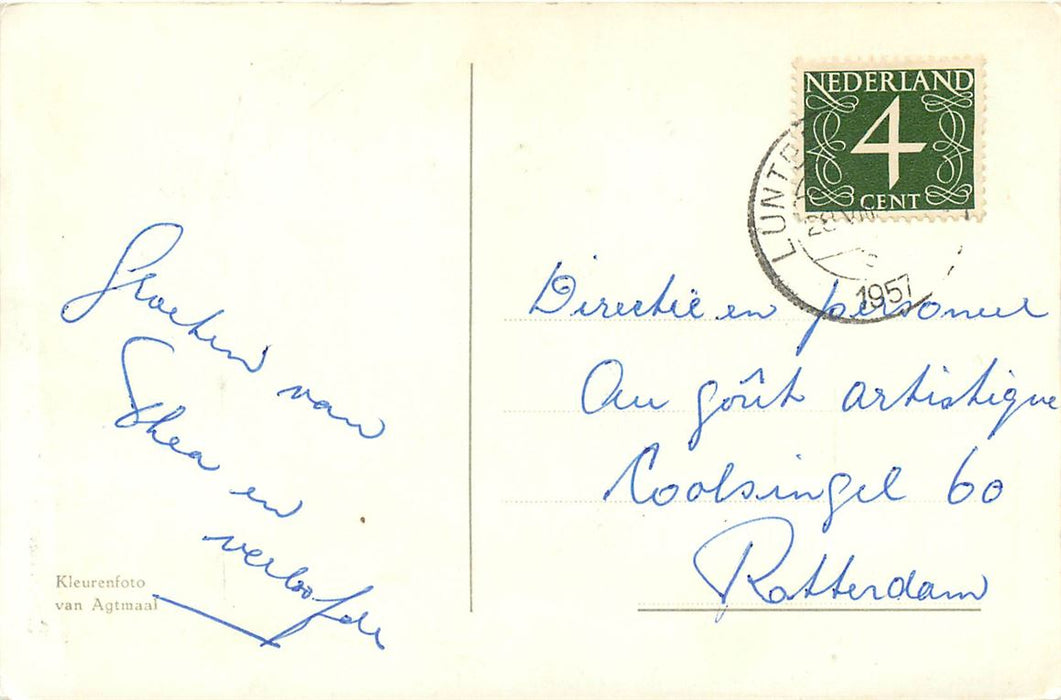 Groeten van
Thea en
verloofde
Kleurenfoto
van Agtmaal
NEDERLAND
4
CENT
1957
Directie en personeel
Au goût artistique
Coolsingel 60
Rotterdam